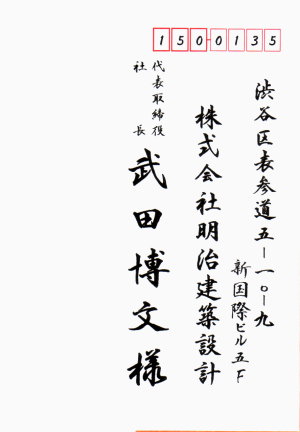 1500135
渋谷区表参道五－一〇－九
新国際ビル五F
株式会社明治建築設計
代表取締役
社長
武田博文様